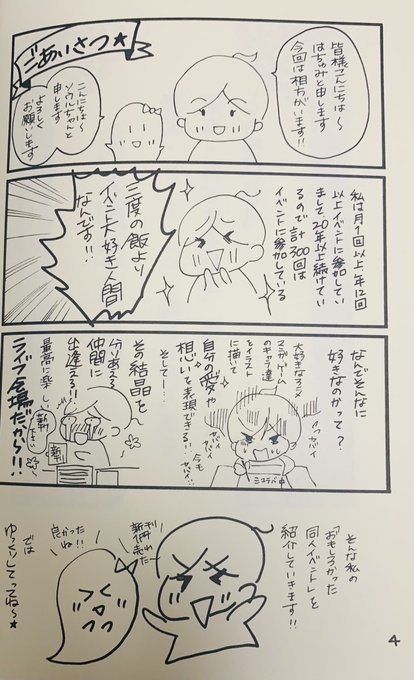 ごあいさつ★
皆様こんにちは〜
はちゅみと申します
今回は相方がいます!!
こんにちは〜
ソウルちゃんと
申します
よろしく
お願いします
私は月1回以上、年12回
以上イベントに参加してい
まして、20年以上続けてい
るので計300回は
イベントに参加している
三度の飯より
イベント大好き人間
なんです!!
なんでそんなに
好きなのかって?
大好きなアニメ
マンガ、ゲーム
のキャラ達
をイラスト
に描いて
自分の愛や
想いを表現できる!!
今も
ヤバイ
ヤバイ
ヤバイ
そして…
その結晶を
分りあえる
仲間に
出逢える!!
最高に楽しい
ライブ会場だから!!
新刊
下さい
新刊
そんな私の
「おもしろかった
同人イベント」を
紹介していきます!!
新刊
売れた〜
良かった
ね!!
では
ゆっくりしてってね〜★
4